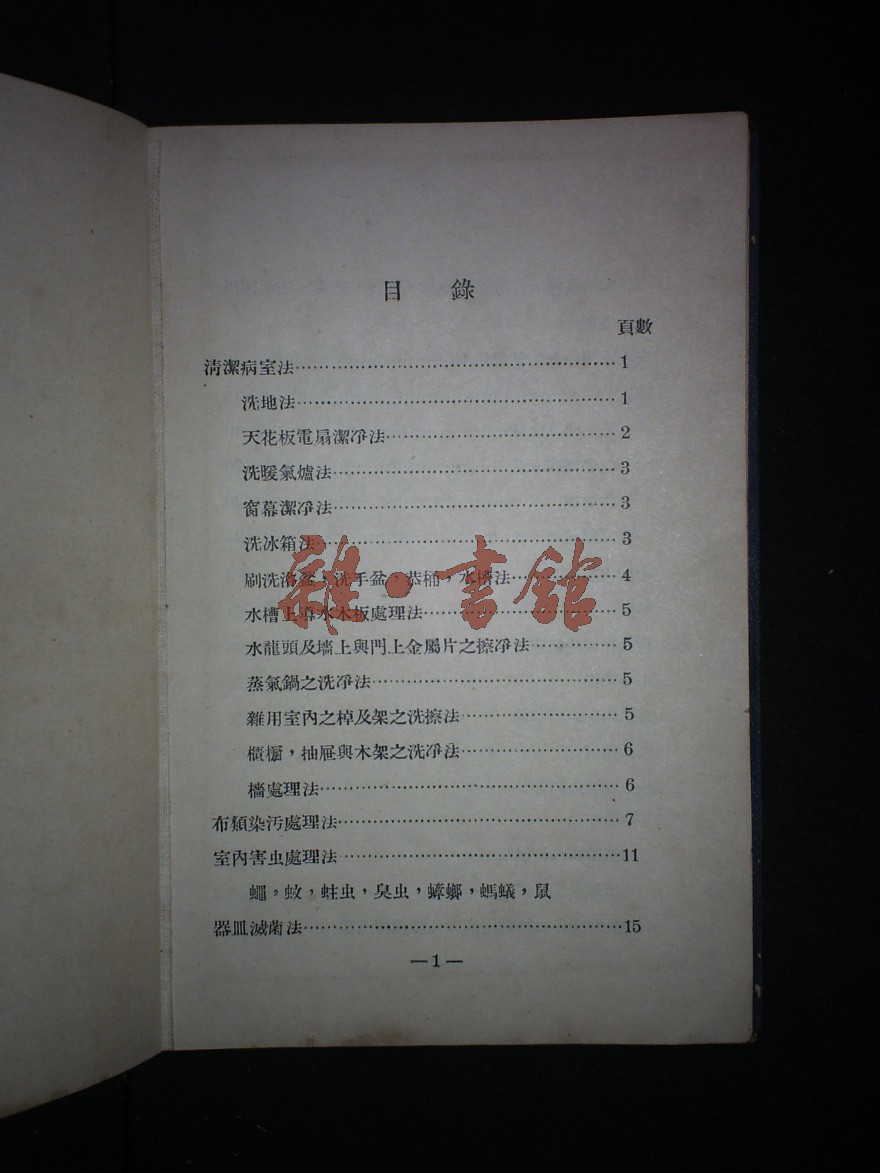 目 錄
頁數
淸潔病室法……1
洗地法……1
天花板電扇潔凈法……2
洗暖氣爐法……3
窗幕潔凈法……3
洗冰箱法……3
刷洗浴盆，洗手盆，恭桶，水槽法……4
水槽上導水木板處理法……5
水龍頭及墻上與門上金屬片之擦凈法……5
蒸氣鍋之洗凈法……5
雜用室內之棹及架之洗擦法……5
櫃櫥，抽屜與木架之洗凈法……6
檣處理法……6
布類染汚處理法……7
室內害虫處理法……11
蠅，蚊，蛀虫，臭虫，蟑螂，螞蟻，鼠
器皿滅菌法……15
—1—
雜·書館